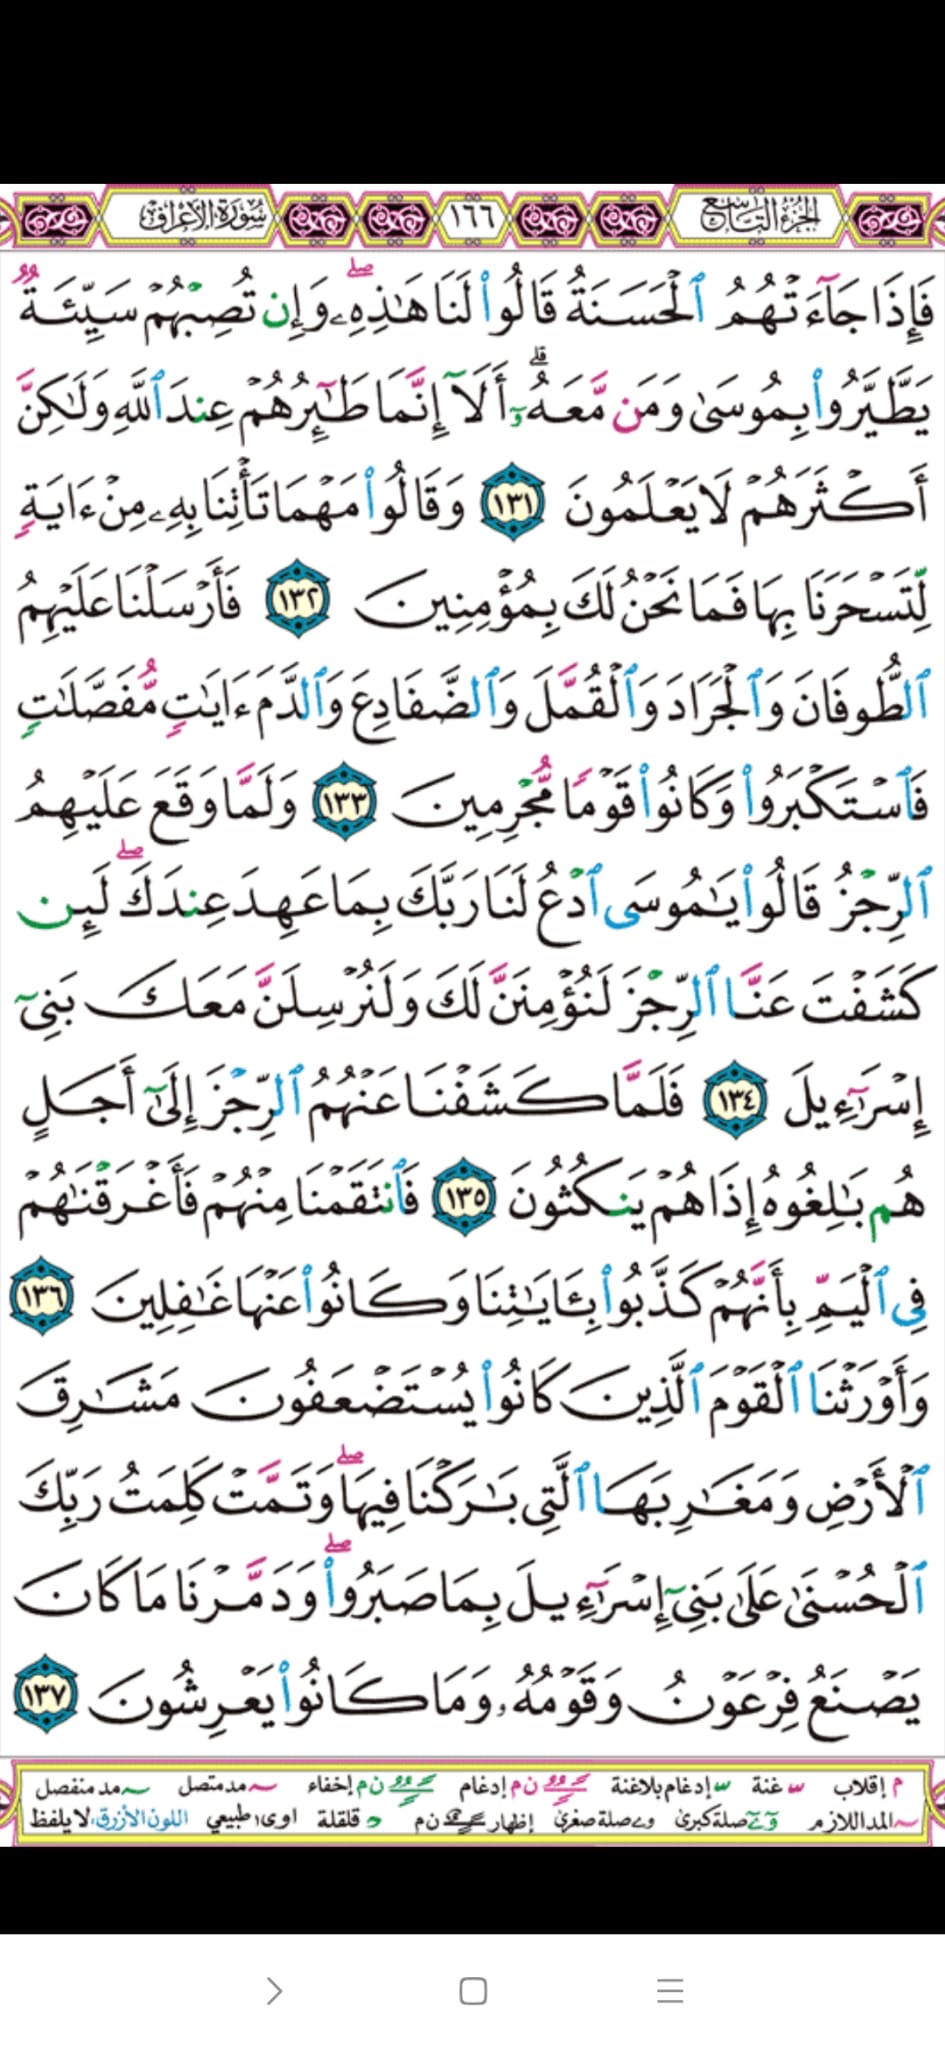 الجزء التاسع
١٦٦
سورة الأعراف
فَإِذَا جَآءَتْهُمُ ٱلْحَسَنَةُ قَالُوا۟ لَنَا هَـٰذِهِۦ ۖ وَإِن تُصِبْهُمْ سَيِّئَةٌ
يَطَّيَّرُوا۟ بِمُوسَىٰ وَمَن مَّعَهُۥٓ ۗ أَلَآ إِنَّمَا طَـٰٓئِرُهُمْ عِندَ ٱللَّهِ وَلَـٰكِنَّ
أَكْثَرَهُمْ لَا يَعْلَمُونَ ١٣١ وَقَالُوا۟ مَهْمَا تَأْتِنَا بِهِۦ مِنْ ءَايَةٍ
لِّتَسْحَرَنَا بِهَا فَمَا نَحْنُ لَكَ بِمُؤْمِنِينَ ١٣٢ فَأَرْسَلْنَا عَلَيْهِمُ
ٱلطُّوفَانَ وَٱلْجَرَادَ وَٱلْقُمَّلَ وَٱلضَّفَادِعَ وَٱلدَّمَ ءَايَـٰتٍ مُّفَصَّلَـٰتٍ
فَٱسْتَكْبَرُوا۟ وَكَانُوا۟ قَوْمًا مُّجْرِمِينَ ١٣٣ وَلَمَّا وَقَعَ عَلَيْهِمُ
ٱلرِّجْزُ قَالُوا۟ يَـٰمُوسَى ٱدْعُ لَنَا رَبَّكَ بِمَا عَهِدَ عِندَكَ ۖ لَئِن
كَشَفْتَ عَنَّا ٱلرِّجْزَ لَنُؤْمِنَنَّ لَكَ وَلَنُرْسِلَنَّ مَعَكَ بَنِىٓ
إِسْرَٰٓءِيلَ ١٣٤ فَلَمَّا كَشَفْنَا عَنْهُمُ ٱلرِّجْزَ إِلَىٰٓ أَجَلٍ
هُم بَـٰلِغُوهُ إِذَا هُمْ يَنكُثُونَ ١٣٥ فَٱنتَقَمْنَا مِنْهُمْ فَأَغْرَقْنَـٰهُمْ
فِى ٱلْيَمِّ بِأَنَّهُمْ كَذَّبُوا۟ بِـَٔايَـٰتِنَا وَكَانُوا۟ عَنْهَا غَـٰفِلِينَ ١٣٦
وَأَوْرَثْنَا ٱلْقَوْمَ ٱلَّذِينَ كَانُوا۟ يُسْتَضْعَفُونَ مَشَـٰرِقَ
ٱلْأَرْضِ وَمَغَـٰرِبَهَا ٱلَّتِى بَـٰرَكْنَا فِيهَا ۖ وَتَمَّتْ كَلِمَتُ رَبِّكَ
ٱلْحُسْنَىٰ عَلَىٰ بَنِىٓ إِسْرَٰٓءِيلَ بِمَا صَبَرُوا۟ ۖ وَدَمَّرْنَا مَا كَانَ
يَصْنَعُ فِرْعَوْنُ وَقَوْمُهُۥ وَمَا كَانُوا۟ يَعْرِشُونَ ١٣٧
م إقلاب غنة إدغام بلاغنة ن م إدغام ن م إخفاء مد متصل مد منفصل
المد اللازم صلة كبرى صلة صغرى إظهار ن م قلقلة اوى طبيعي اللون الأزرق: لا يلفظ